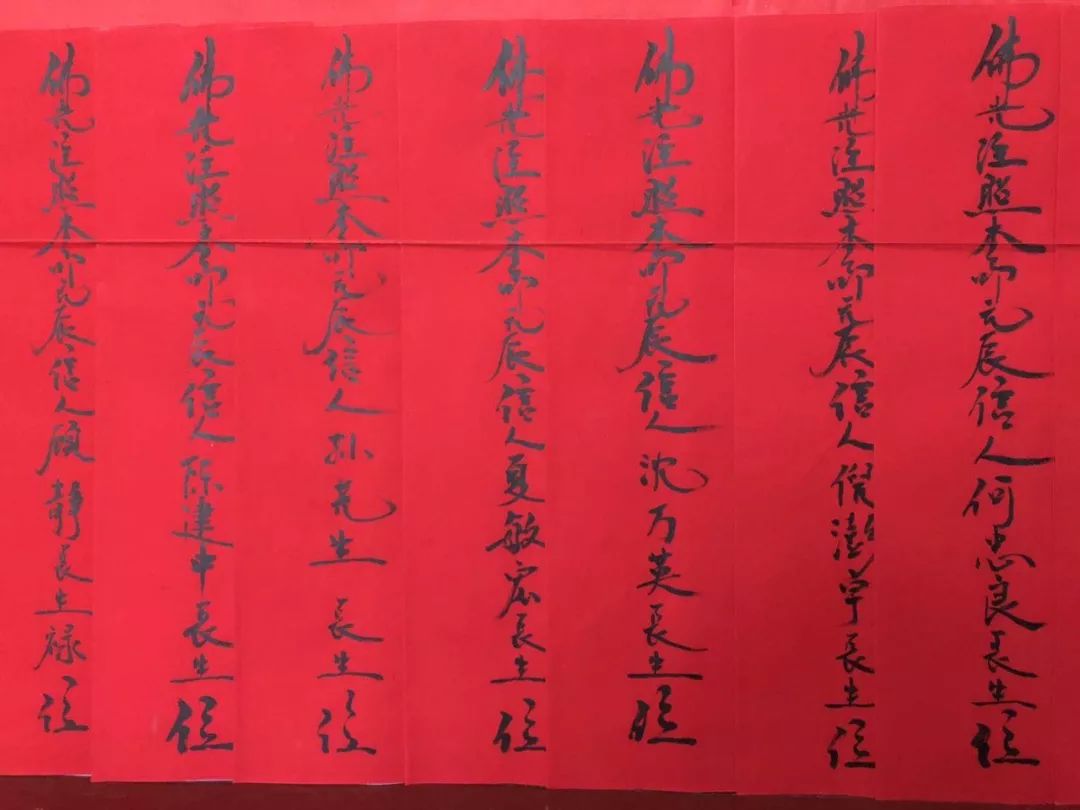 佛光注照本命元辰信人何忠良長生位
佛光注照本命元辰信人倪澎宇長生位
佛光注照本命元辰信人沈万英長生位
佛光注照本命元辰信人夏敏宏長生位
佛光注照本命元辰信人孙先生長生位
佛光注照本命元辰信人陈建中長生位
佛光注照本命元辰信人顾静長生禄位